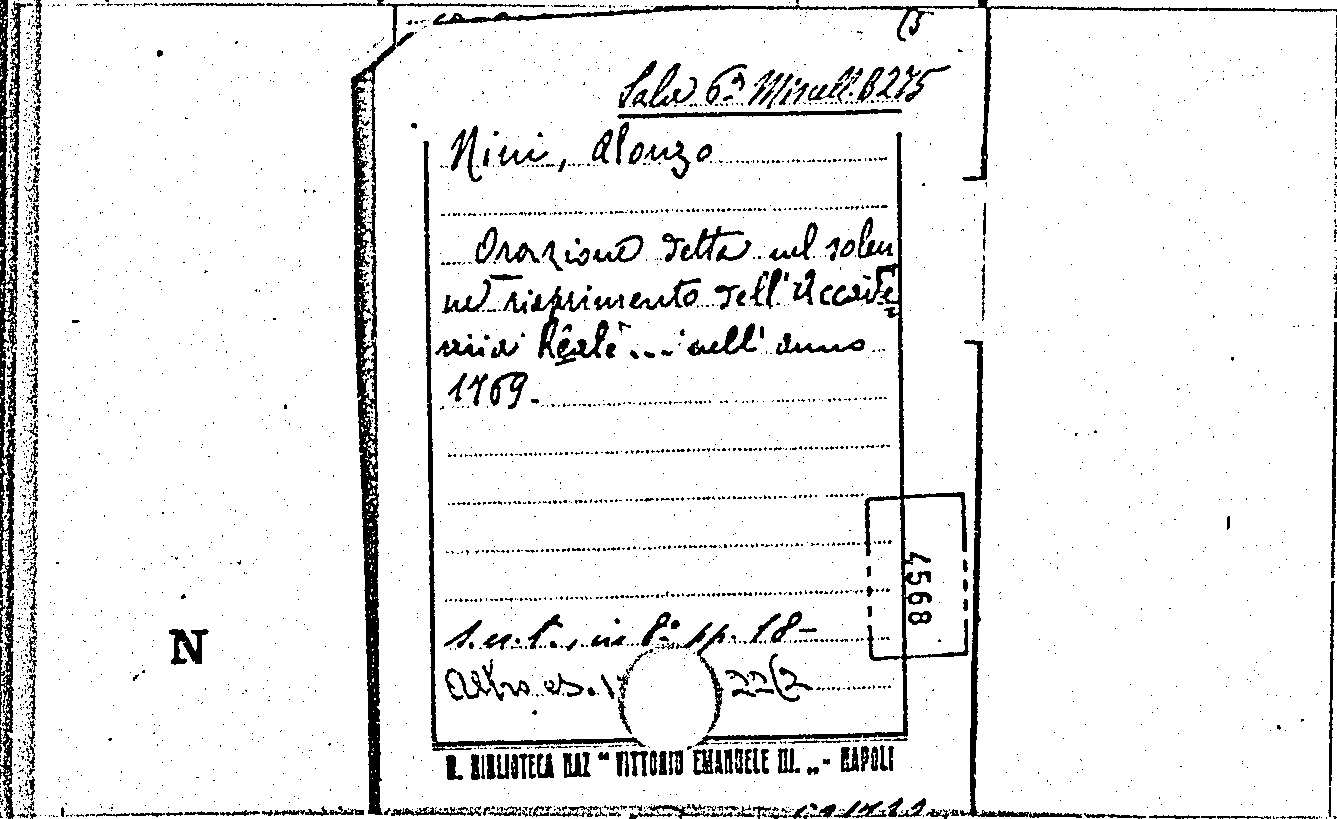 (5
Sala 6ª Miscell. B 275
Nini, Alonzo
Orazione detta nel solen
ne riaprimento dell'Accade
mia Reale ... nell' anno
1769.
4568
s.n.t., in 8.° pp. 18-
Altro es. 22/2
N
R. BIBLIOTECA NAZ " VITTORIO EMANUELE III. „ - NAPOLI